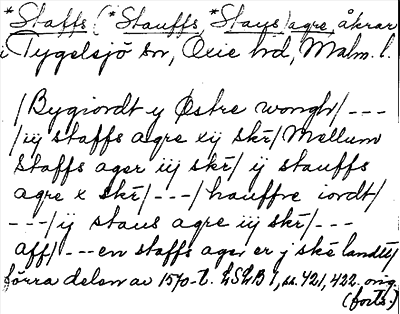 *Staffs (*Stauffs, *Staus) agre, åkrar
i Tygelsjö sn, Oxie hd, Malm. l.
/Bygiordt y Østre wongh/ ---
/iij staffs agre xij ske/ Mellum
Staffs ager iij ske/ ij stauffs
agre x ske/ --- / hauffre iordt/
--- /ij staus agre iij ske/ ---
aff/ --- en staffs ager er j ske landt/
förra delen av 1570-t. LSLB 1, ss. 421, 422. orig.
(forts.)